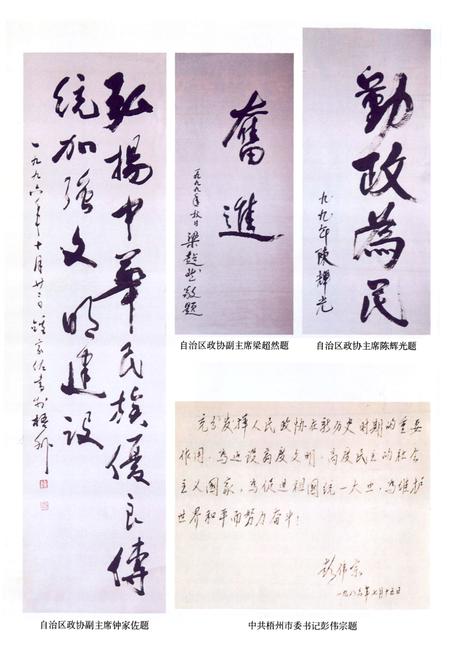 弘揚中華民族優良傳
统加强文明建设
一九九六年十月廿三日鍾家佐書於梧州
自治区政协副主席钟家佐题
奮進
一九九九年秋日
梁超然敬題
自治区政协副主席梁超然题
勤政為民
九九年陳輝光
自治区政协主席陈辉光题
充分发挥人民政协在新历史时期的重要
作用，为建设高度文明、高度民主的社会
主义国家，为促进祖国统一大业，为维护
世界和平而努力奋斗！
彭伟宗
一九八六年七月十五日
中共梧州市委书记彭伟宗题